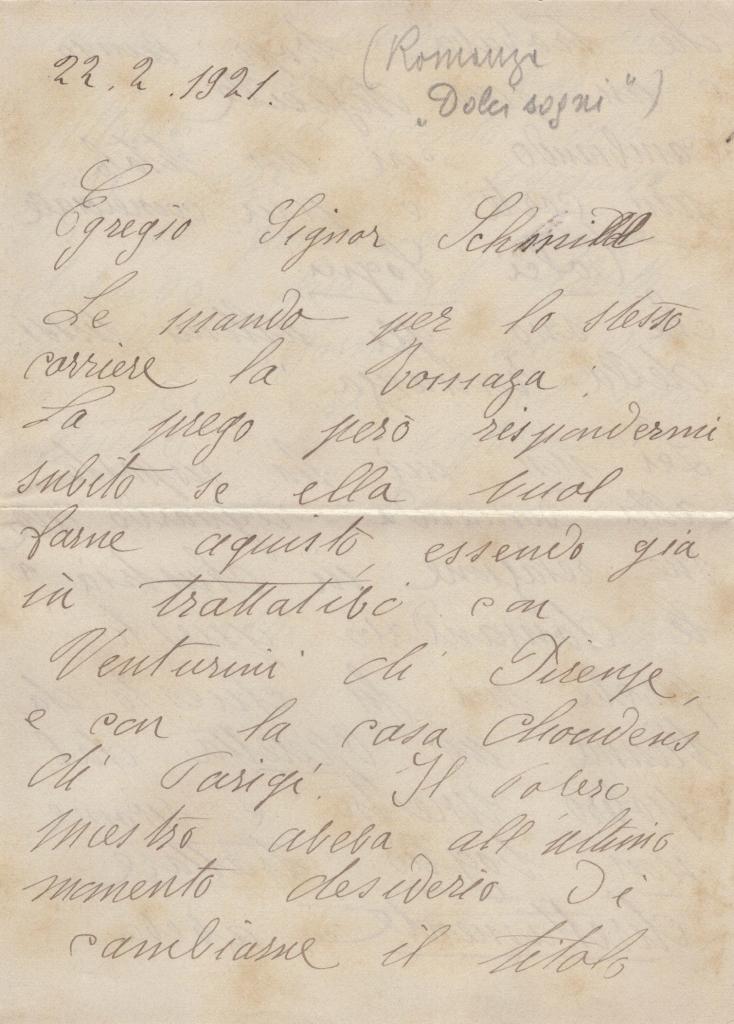 22.2.1921.
(Romanza
"Dolci sogni")
Egregio Signor Schmidl
Le mando per lo stesso
corriere la Romaza.
La prego però rispondermi
subito se ella vuol
farne aquisto, essendo già
in trattativi con
Venturini di Firenze,
e con la casa Choudens
di Parigi. Il Povero
maestro aveva all'ultimo
momento desiderio di
cambiarne il titolo